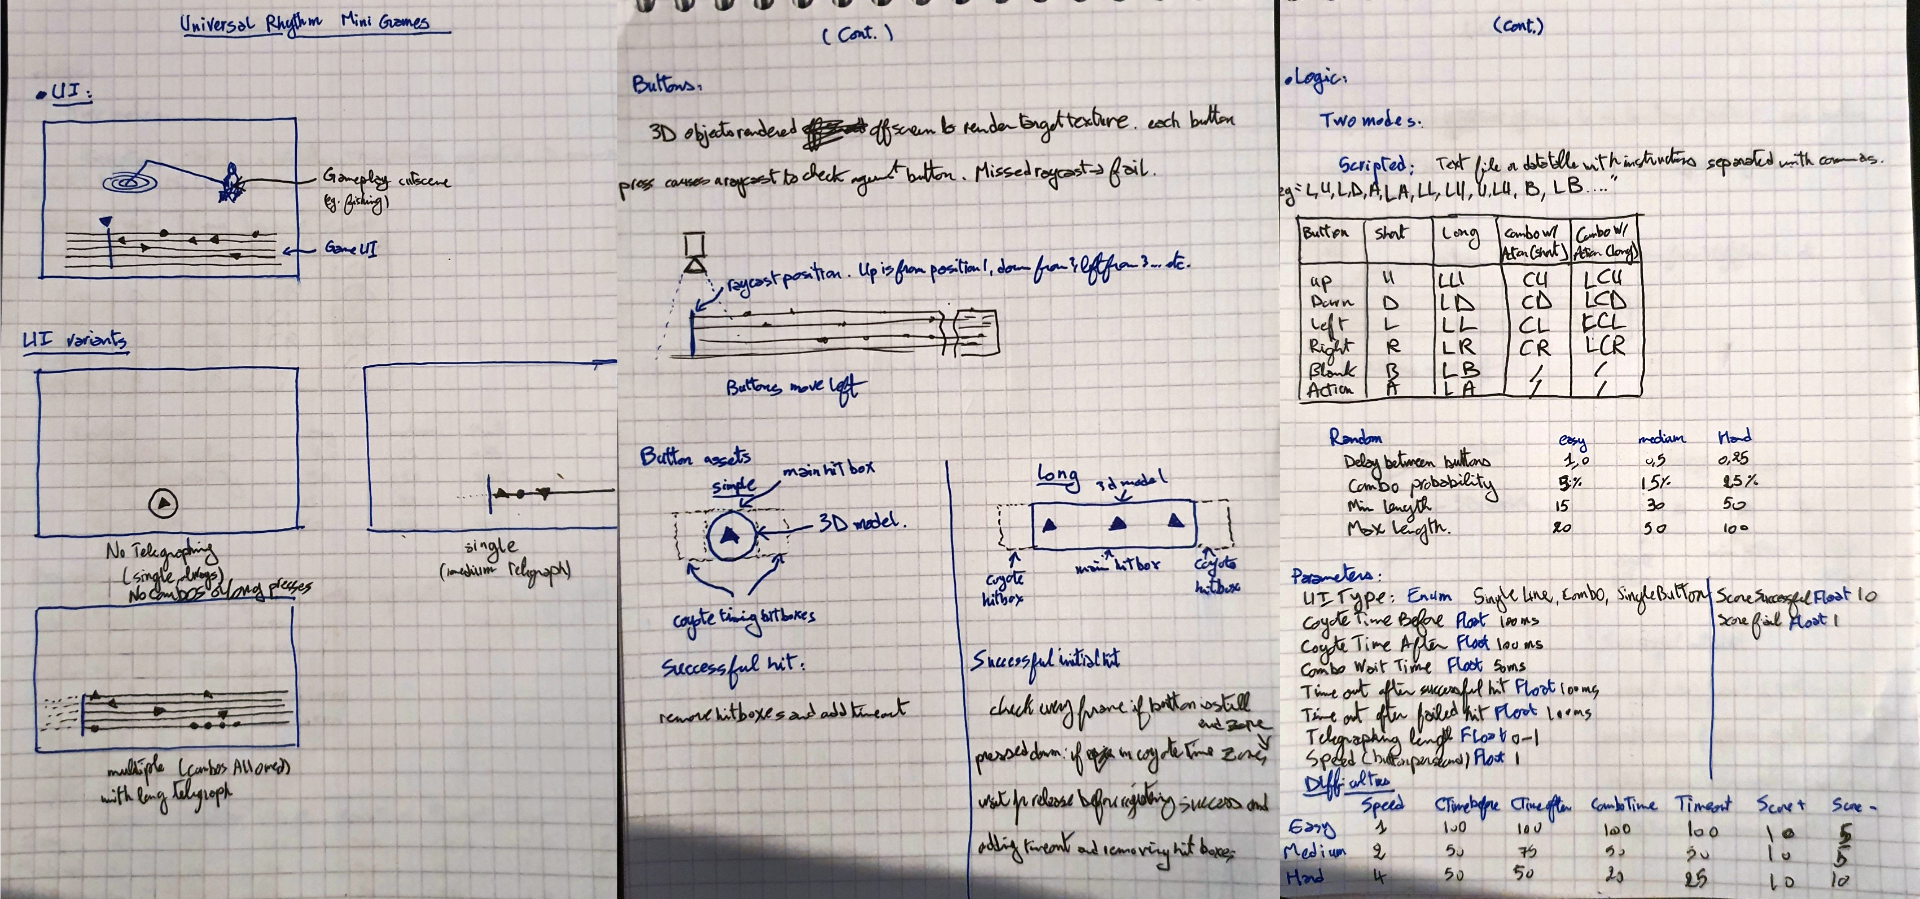 Universal Rhythm Mini Games
• UI:
Gameplay cutscene
(eg. fishing)
Game UI
UI variants
No Telegraphing
(single always)
No combos or long presses
single
(medium Teligraph)
multiple (combos Allowed)
with long Teligraph
(Cont.)
Buttons:
3D objects rendered off screen to render target texture. each button
press causes a raycast to check against button. Missed raycast → fail.
raycast position. Up is from position 1, down from 2, left from 3... etc.
Buttons move left
Button assets
simple
main hit box
3D model.
coyote timing hitboxes
Successful hit:
remove hitboxes and add timeout
Long
3d model
coyote
hitbox
main hitbox
coyote
hitbox
Successful initial hit
check every frame if button is still
and zone
pressed down: if in coyote time zone,
wait for release before registering success and
adding timeout and removing hit boxes
(Cont.)
• Logic:
Two modes:
Scripted: Text file or datatable with instructions separated with commas.
eg = L,U,LD,A,LA,LL,LU,U,LU,B,LB...."
Button Short Long Combo W/ Action (short) Combo W/ Action (long)
up U LU CU LCU
Down D LD CD LCD
Left L LL CL LCL
Right R LR CR LCR
Blank B LB / /
Action A LA / /
Random easy medium Hard
Delay between buttons 1,0 0,5 0,25
Combo probability 5% 15% 25%
Min length 15 30 50
Max length. 20 50 100
Parameters:
UI Type: Enum Single Line, Combo, Single Button
Coyote Time Before Float 100ms
Coyote Time After Float 100ms
Combo Wait Time Float 50ms
Time out after successful hit Float 100ms
Time out after failed hit Float 100ms
Telegraphing length Float 0-1
Speed (button per second) Float 1
Score Successful Float 10
Score fail Float 1
Difficulties
Speed CTime before CTime after Combo Time Timeout Score + Score -
Easy 1 100 100 100 100 10 5
Medium 2 50 75 50 50 10 5
Hard 4 50 50 20 25 10 10